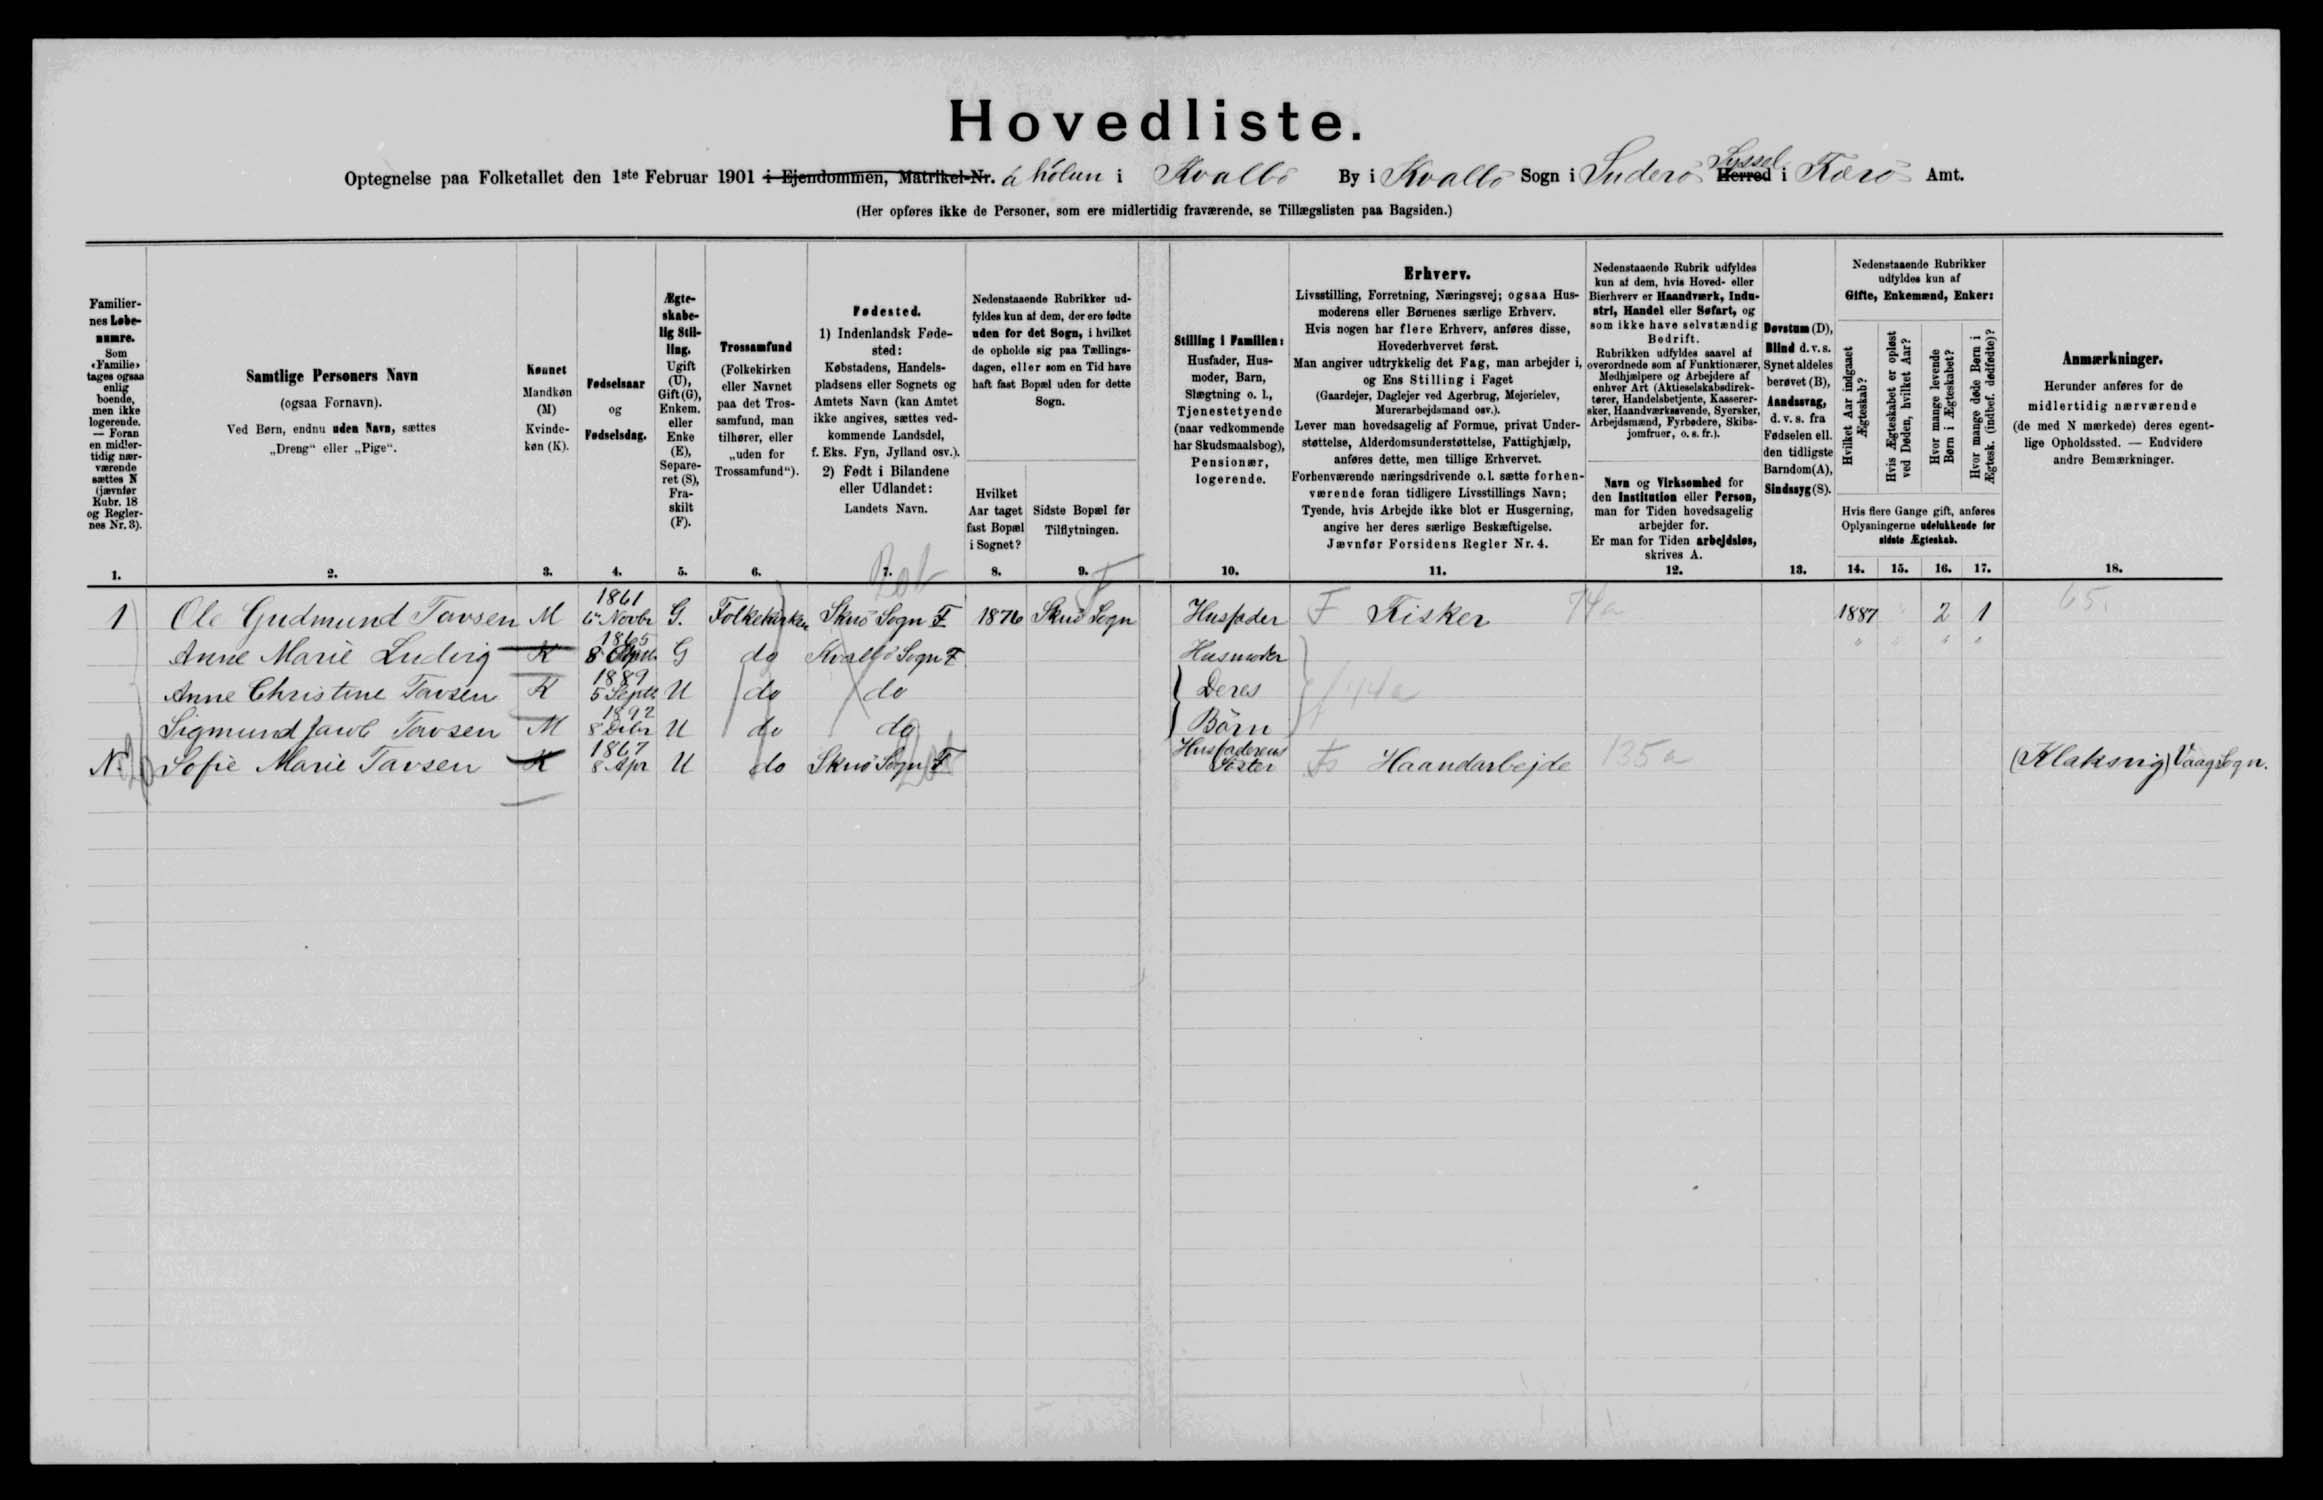 Hovedliste.
Optegnelse paa Folketallet den 1ste Februar 1901 i Ejendommen, Matrikel-Nr. á hólun i Kvalbö By i Kvalbö Sogn i Suderö Syssel Herred i Færö Amt.
(Her opføres ikke de Personer, som ere midlertidig fraværende, se Tillægslisten paa Bagsiden.)
Familiernes Løbenumre.
Som «Familie» tages ogsaa enlig boende, men ikke logerende. — Foran en midlertidig nærværende sættes N (jævnfør Rubr. 18 og Reglernes Nr. 3).
1.
Samtlige Personers Navn
(ogsaa Fornavn).
Ved Børn, endnu uden Navn, sættes
„Dreng“ eller „Pige“.
2.
Kønnet
Mandkøn (M)
Kvindekøn (K).
3.
Fødselsaar
og
Fødselsdag.
4.
Ægteskabelig Stilling.
Ugift (U), Gift (G), Enkem. eller Enke (E), Separeret (S), Fraskilt (F).
5.
Trossamfund
(Folkekirken eller Navnet paa det Trossamfund, man tilhører, eller „uden for Trossamfund“).
6.
Fødested.
1) Indenlandsk Fødested:
Købstadens, Handelspladsens eller Sognets og Amtets Navn (kan Amtet ikke angives, sættes vedkommende Landsdel, f. Eks. Fyn, Jylland osv.).
2) Født i Bilandene eller Udlandet:
Landets Navn.
7.
Nedenstaaende Rubrikker udfyldes kun af dem, der ere fødte uden for det Sogn, i hvilket de opholde sig paa Tællingsdagen, eller som en Tid have haft fast Bopæl uden for dette Sogn.
Hvilket Aar taget fast Bopæl i Sognet?
8.
Sidste Bopæl før Tilflytningen.
9.
Stilling i Familien:
Husfader, Husmoder, Barn, Slægtning o. l., Tjenestetyende (naar vedkommende har Skudsmaalsbog), Pensionær, logerende.
10.
Erhverv.
Livsstilling, Forretning, Næringsvej; ogsaa Husmoderens eller Børnenes særlige Erhverv.
Hvis nogen har flere Erhverv, anføres disse, Hovederhvervet først.
Man angiver udtrykkelig det Fag, man arbejder i, og Ens Stilling i Faget
(Gaardejer, Daglejer ved Agerbrug, Mejerielev, Murerarbejdsmand osv.).
Lever man hovedsagelig af Formue, privat Understøttelse, Alderdomsunderstøttelse, Fattighjælp, anføres dette, men tillige Erhvervet.
Forhenværende næringsdrivende o.l. sætte forhenværende foran tidligere Livsstillings Navn;
Tyende, hvis Arbejde ikke blot er Husgerning, angive her deres særlige Beskæftigelse.
Jævnfør Forsidens Regler Nr. 4.
11.
Nedenstaaende Rubrik udfyldes kun af dem, hvis Hoved- eller Bierhverv er Haandværk, Industri, Handel eller Søfart, og som ikke have selvstændig Bedrift.
Rubrikken udfyldes saavel af overordnede som af Funktionærer, Medhjælpere og Arbejdere af enhver Art (Aktieselskabsdirektører, Handelsbetjente, Kasserersker, Haandværkssvende, Syersker, Arbejdsmænd, Fyrbødere, Skibsjomfruer, o. s. fr.).
Navn og Virksomhed for den Institution eller Person, man for Tiden hovedsagelig arbejder for.
Er man for Tiden arbejdsløs, skrives A.
12.
Døvstum (D), Blind d. v. s. Synet aldeles berøvet (B), Aandssvag, d. v. s. fra Fødselen ell. den tidligste Barndom (A), Sindssyg (S).
13.
Nedenstaaende Rubrikker udfyldes kun af
Gifte, Enkemænd, Enker:
Hvilket Aar indgaaet Ægteskab?
Hvis Ægteskabet er opløst ved Døden, hvilket Aar?
Hvor mange levende Børn i Ægteskabet?
Hvor mange døde Børn i Ægtesk. (indbef. dødfødte)?
Hvis flere Gange gift, anføres Oplysningerne udelukkende for sidste Ægteskab.
14. 15. 16. 17.
Anmærkninger.
Herunder anføres for de midlertidig nærværende (de med N mærkede) deres egentlige Opholdssted. — Endvidere andre Bemærkninger.
18.
1 Ole Gudmund Tavsen M 1861 6 Novbr G. Folkekirken Skuö Sogn F. 1876 Skuö Sogn Husfader F Fisker 74a 1887 " 2 1 65.
Anne Marie Ludvig K 1865 8 G do Kvalbö Sogn F Husmoder " " " "
Anne Christine Tavsen K 1889 5 Septr U do do Deres
Sigmund Jacob Tavsen M 1892 8 Decbr U do do Börn
N. Sofie Marie Tavsen K 1867 8 Apr U do Skuö Sogn F Husfaderens Söster Haandarbejde 135a (Klaksvig) Vaag Sogn.